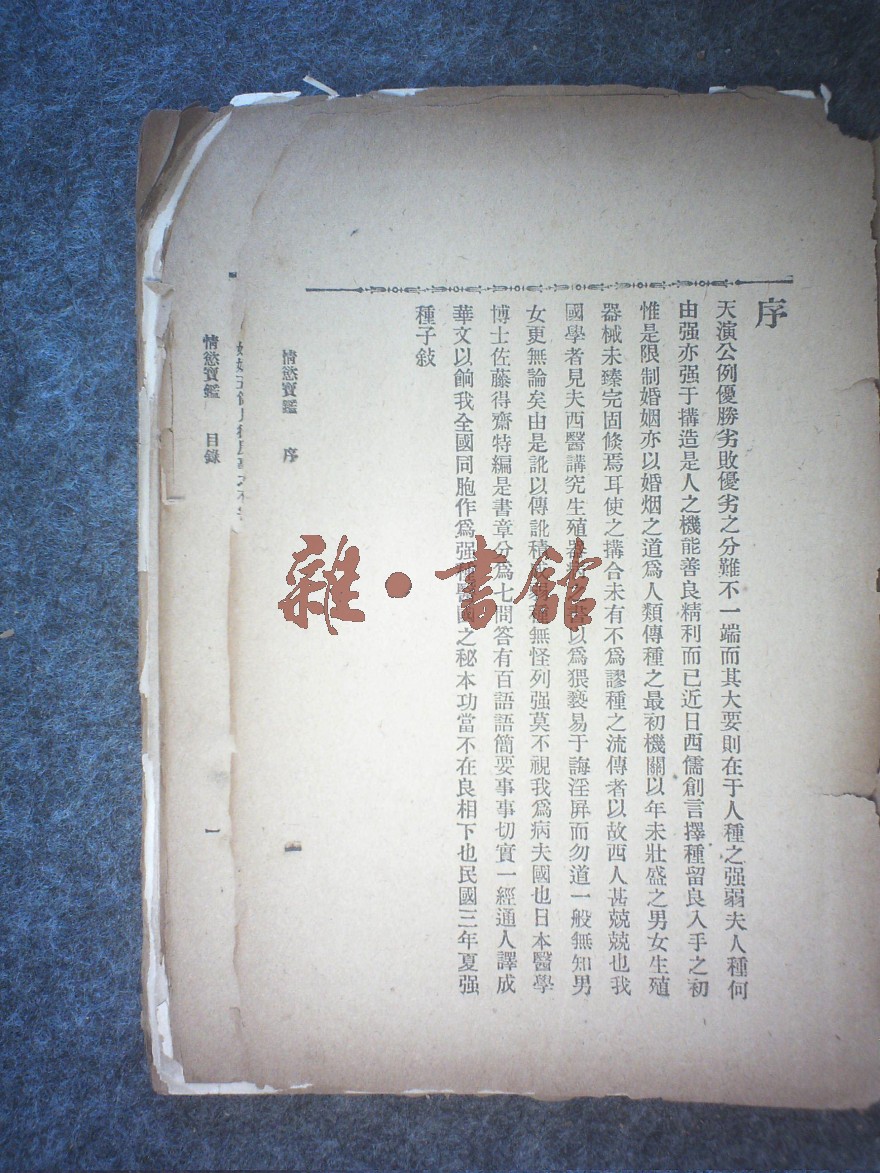 序
天演公例優勝劣敗優劣之分難不一端而其大要則在于人種之强弱夫人種何
由强亦强于搆造是人之機能善良精利而已近日西儒創言擇種留良入手之初
惟是限制婚姻亦以婚烟之道爲人類傳種之最初機關以年未壯盛之男女生殖
器械未臻完固倐焉耳使之搆合未有不爲謬種之流傳者以故西人甚兢兢也我
國學者見夫西醫講究生殖器 以爲猥褻易于誨淫屏而勿道一般無知男
女更無論矣由是訛以傳訛積 無怪列强莫不視我爲病夫國也日本醫學
博士佐藤得齋特編是書章分爲七問答有百語語簡要事事切實一經通人譯成
華文以餉我全國同胞作爲强種醫國之秘本功當不在良相下也民國三年夏强
種子敍
情慾寶鑑 序 一
情慾寶鑑 目錄 一
雜·書館